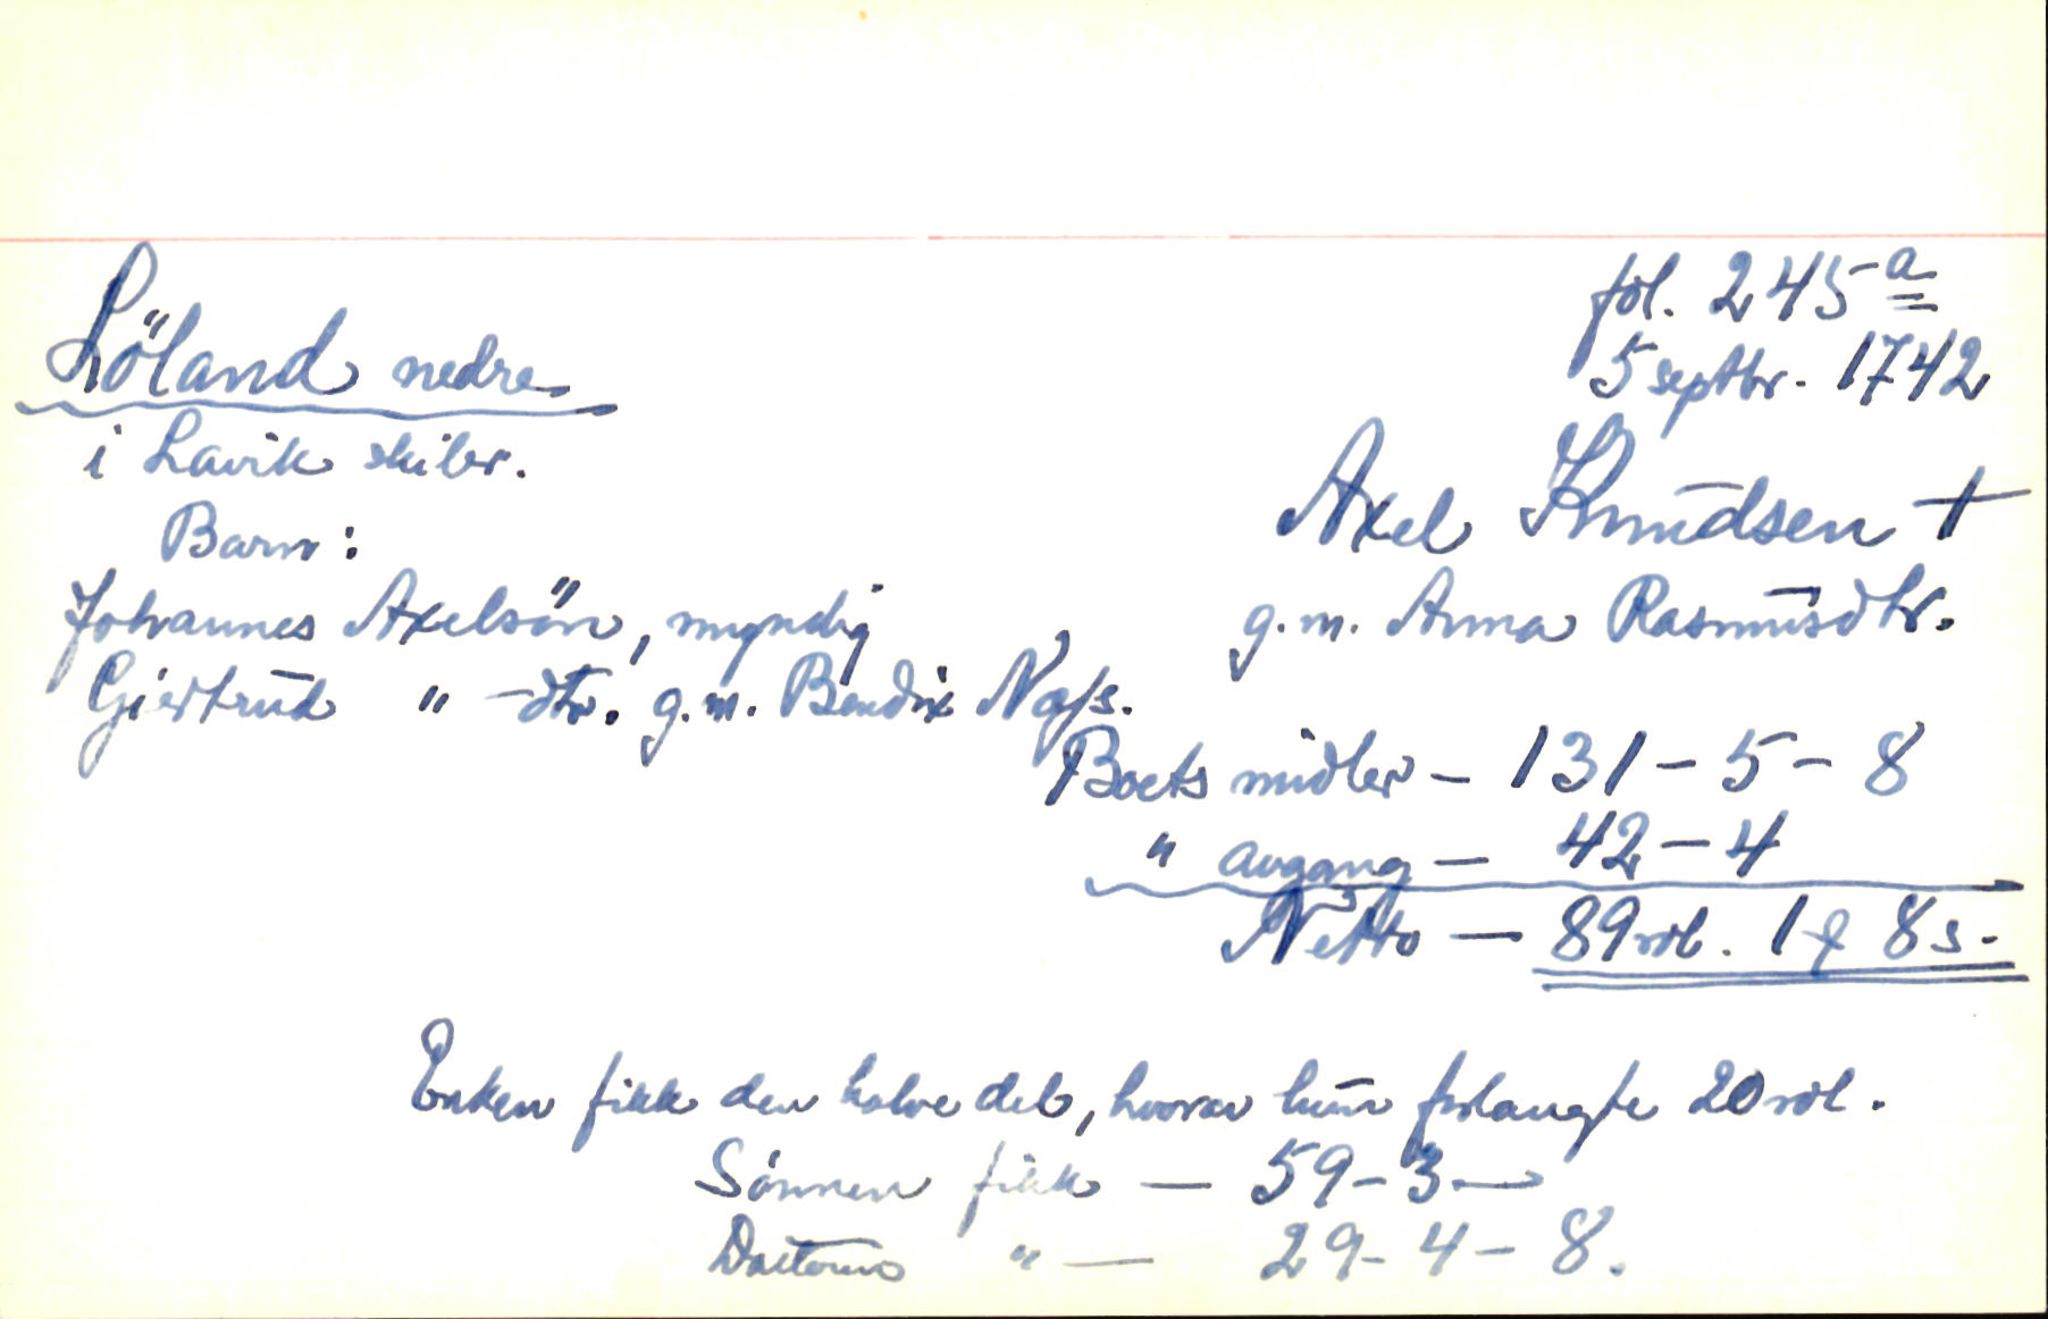 fol. 245 a
Löland nedre
5 septbr. 1742
i Lavik skibr.
Axel Knudsen †
Barn:
g. m. Anna Rasmusdtr.
Johannes Axelsön, myndig
Giertrud " -dtr. g. m. Bendix Næss.
Boets midler - 131 - 5 - 8
" avgang - 42 - 4
Netto - 89 rdl. 1 ℳ 8 s.
Enken fikk den halve del, hvorav hun forlangte 20 rdl.
Sönnen fikk - 59 - 3 -
Datteren " - 29 - 4 - 8.